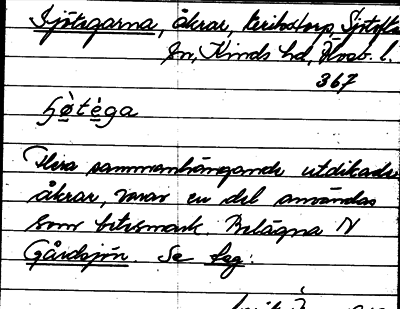 Sjötegarna, åkrar, Sjötofta
sn, Kinds hd, Älvsb. l.
367
hötèga
Flera sammanhängande utdikade
åkrar, varav en del användas
som betesmark. Belägna N
Gårdsjön. Se teg.